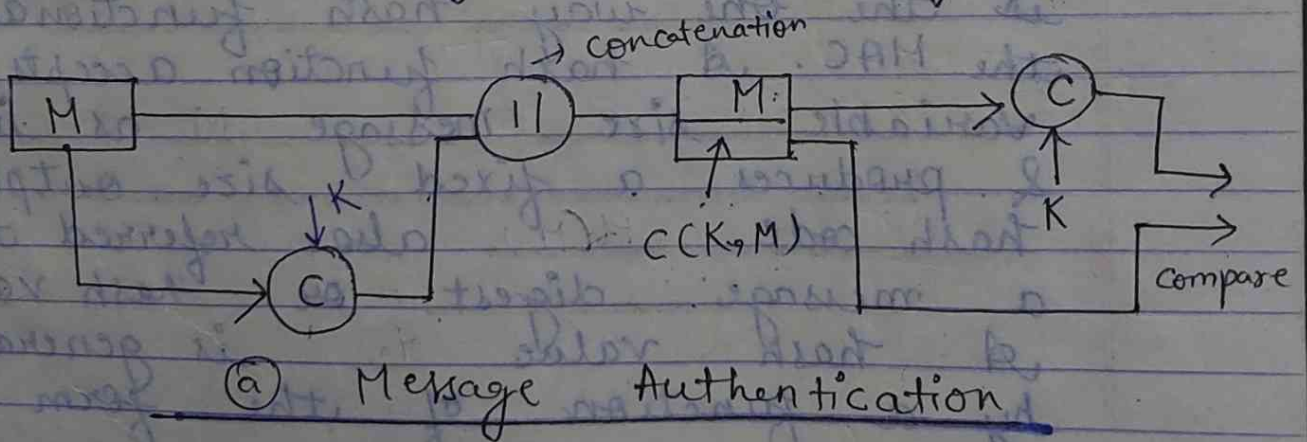 → concatenation
M
||
M
C
K
K
C(K,M)
C
compare
(a) Message Authentication